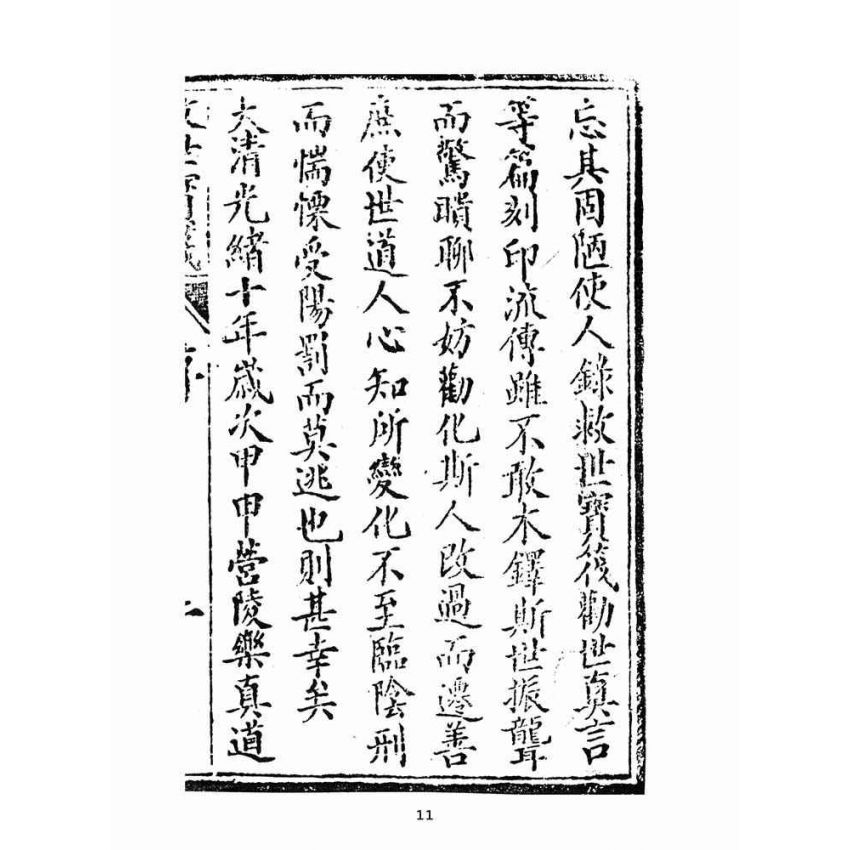 忘其固陋使人錄救世寶筏勸世真言
等篇刻印流傳雖不敢木鐸斯世振聾
而驚聵聊不妨勸化斯人改過而遷善
庶使世道人心知所變化不至臨陰刑
而惴慄受陽罰而莫逃也則甚幸矣
大清光緒十年歲次甲申營陵樂真道
11